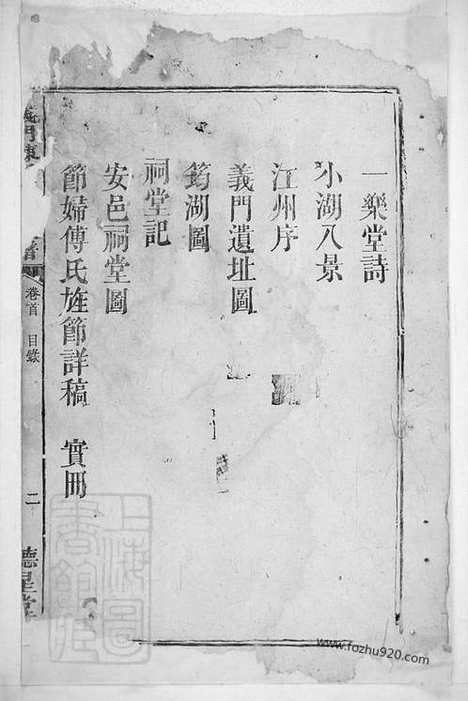 一樂堂詩
小湖八景
江州序
義門遺址圖
筠湖圖
祠堂記
安邑祠堂圖
節婦傅氏旌節詳稿 實冊
義門陳
譜
卷首 目錄
二
德星堂
上海圖書館藏
www.fozhu920.com